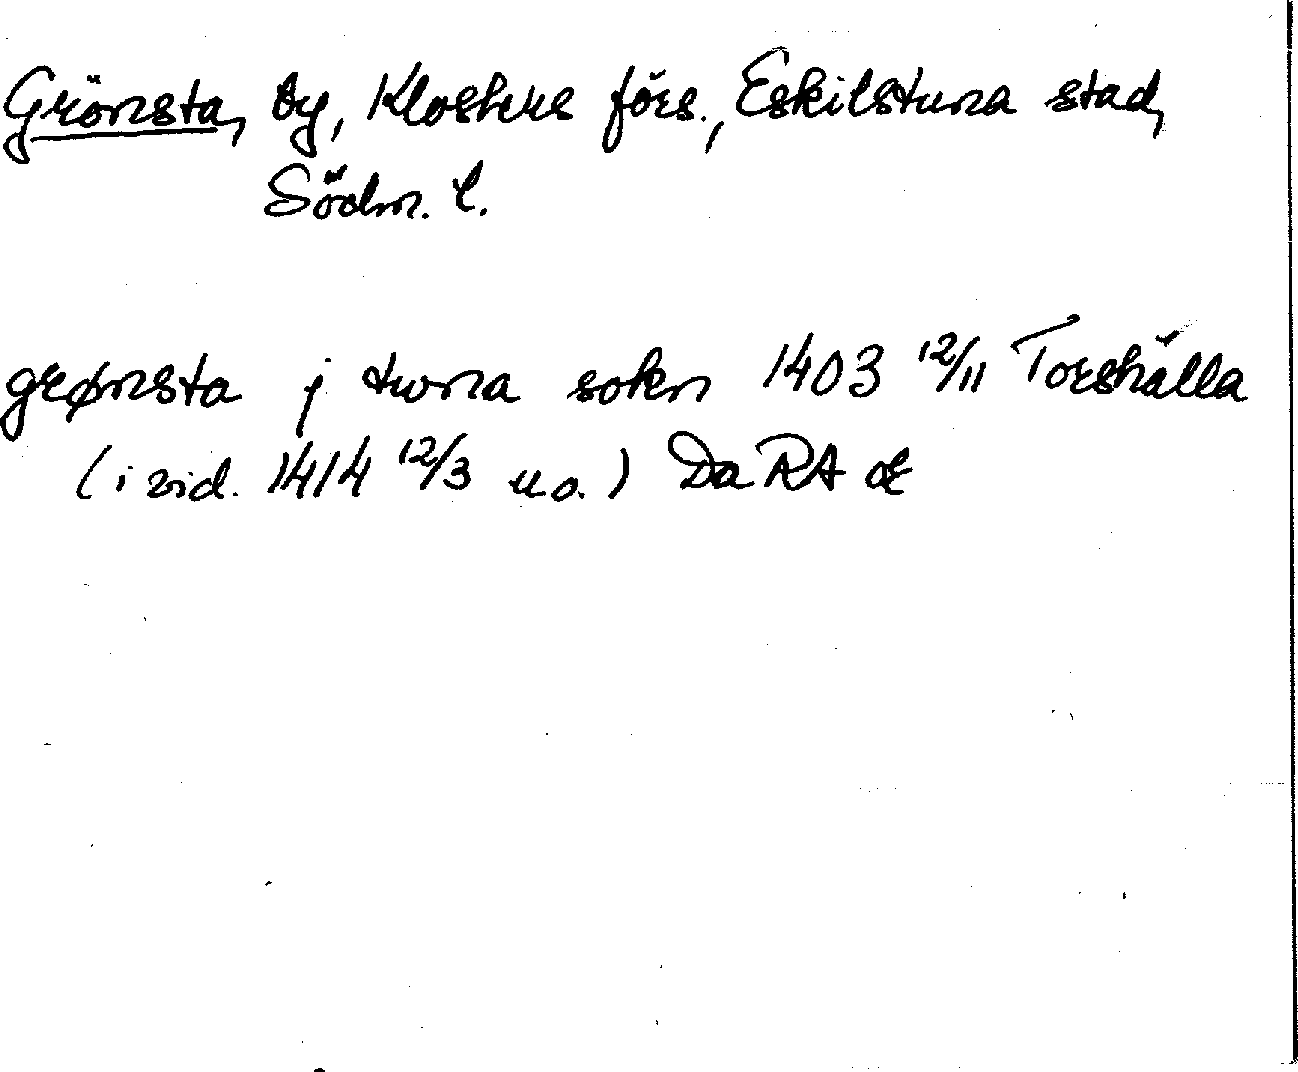 Grönsta, by, Klosters förs., Eskilstuna stad,
Södm. l.
grønsta j twna sokn 1403 12/11 Torshälla
(i vid. 1414 12/3 u.o.) Da RA or